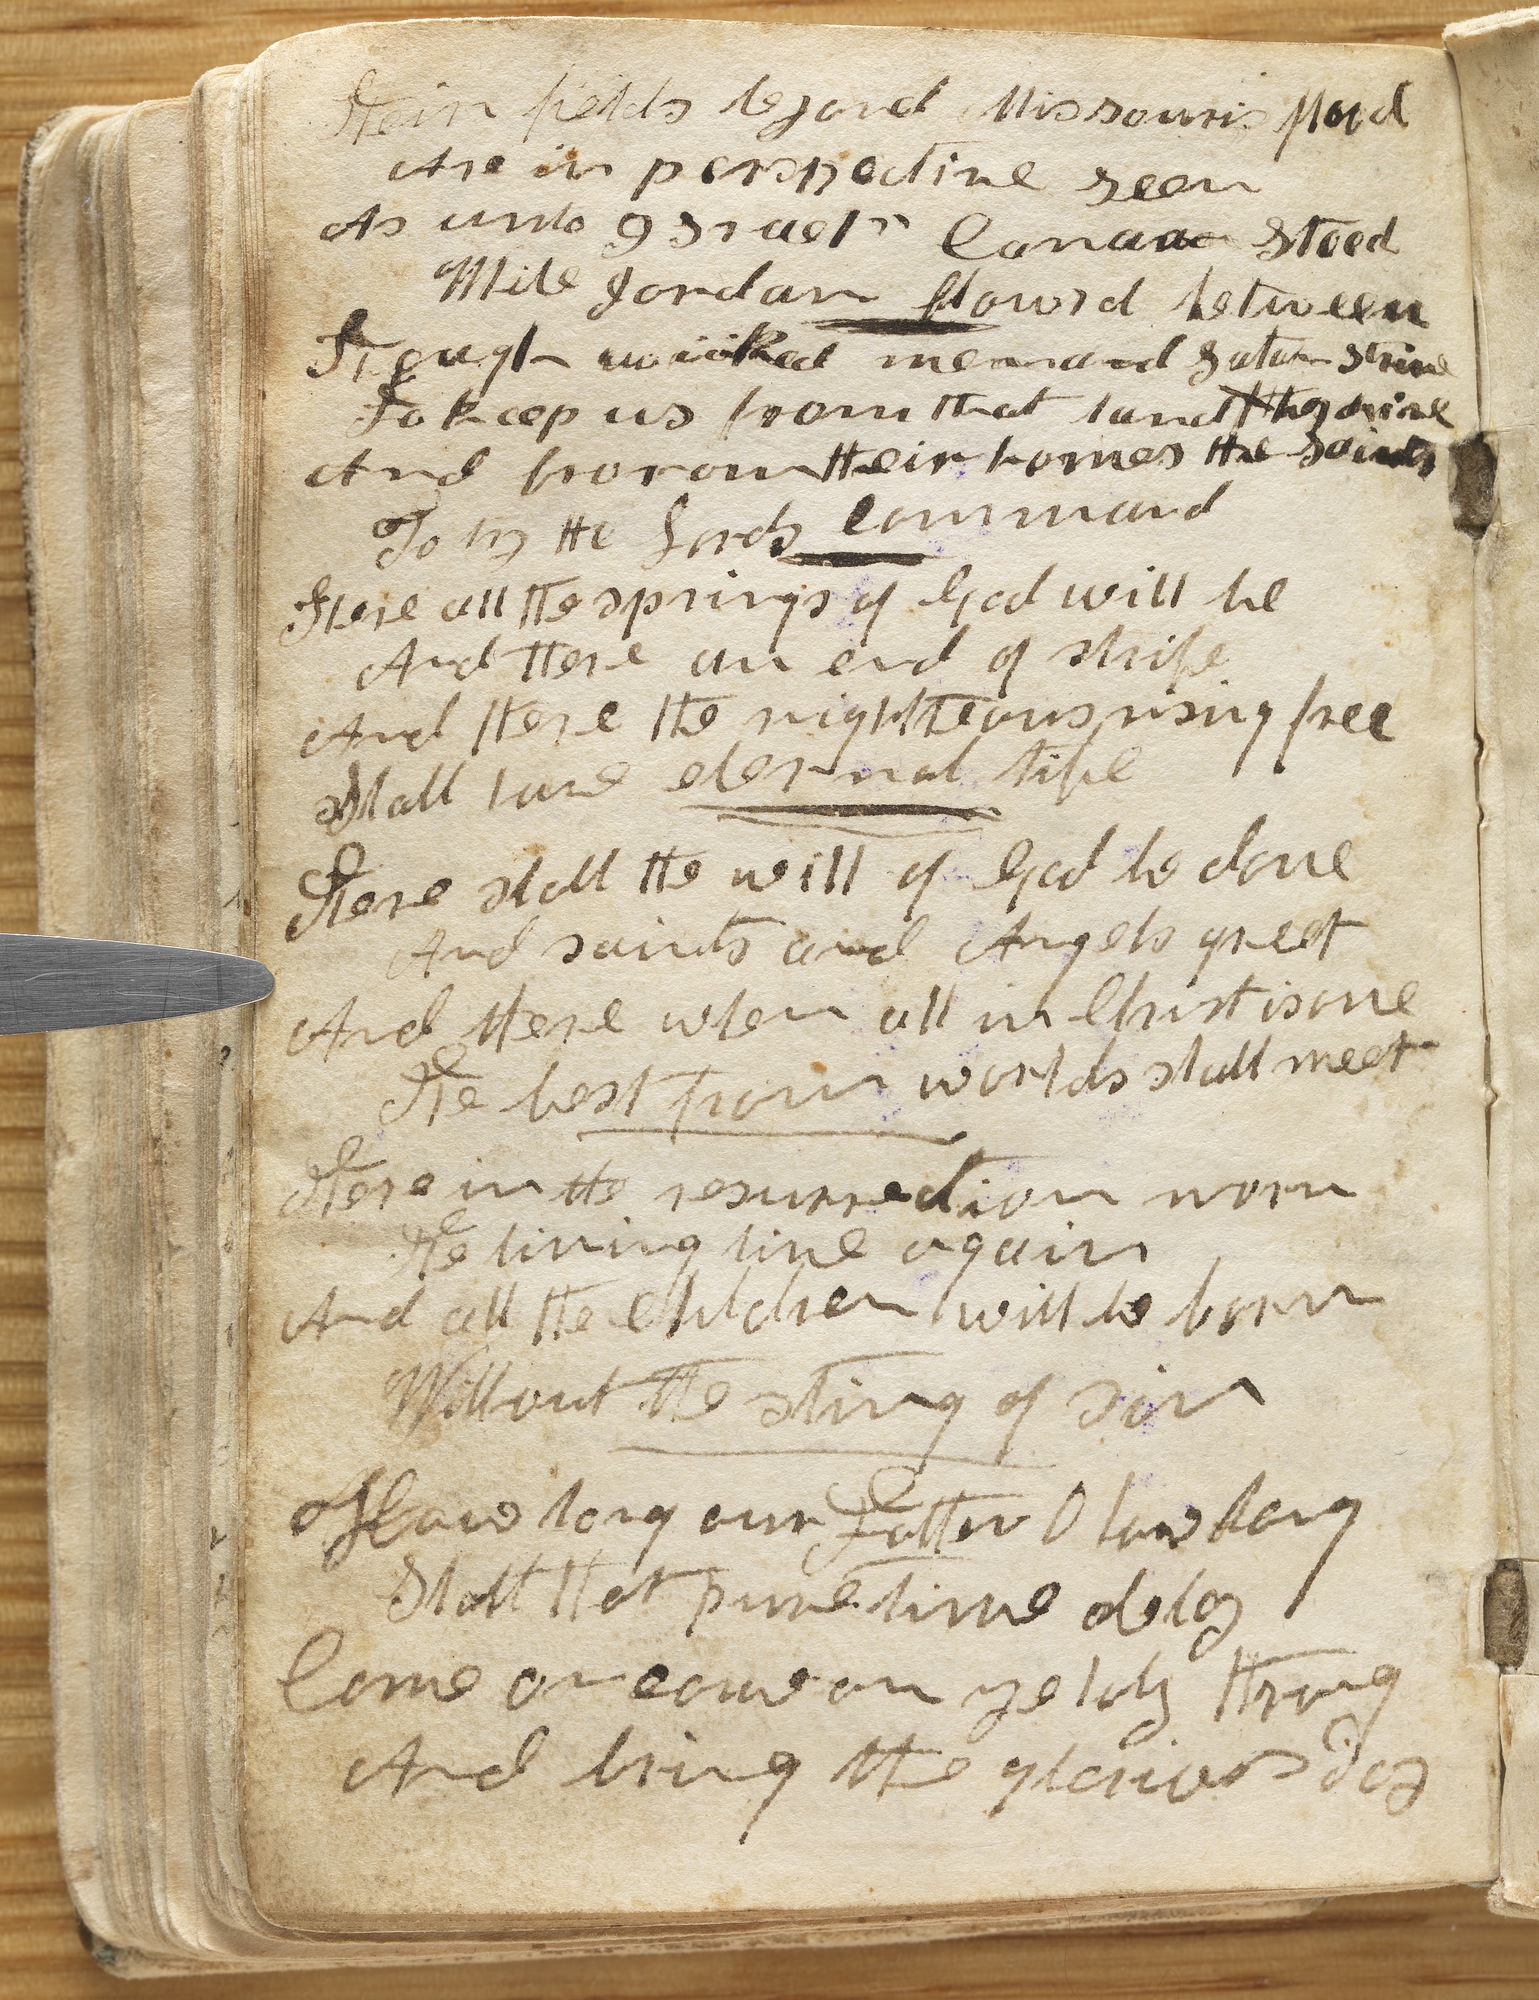 Their fields beyond Missouris flood
Are in perspective seen
As unto Israel's Canaan stood
While Jordan flowed between
Though wicked men and Satan strive
To keep us from that land
And from their homes the saints
To try the Lords Command
There all the springs of God will be
And there an end of strife
And there the righteous rising free
Shall have eternal life
There shall the will of God be done
And saints and Angels greet
And there when all in Christ is one
The best from worlds shall meet
There in the resurrection morn
The living live again
And all the children will be born
Without the sting of sin
How long our Father O how long
Shall that pure time delay
Come on come on ye holy throng
And bring the glorious day